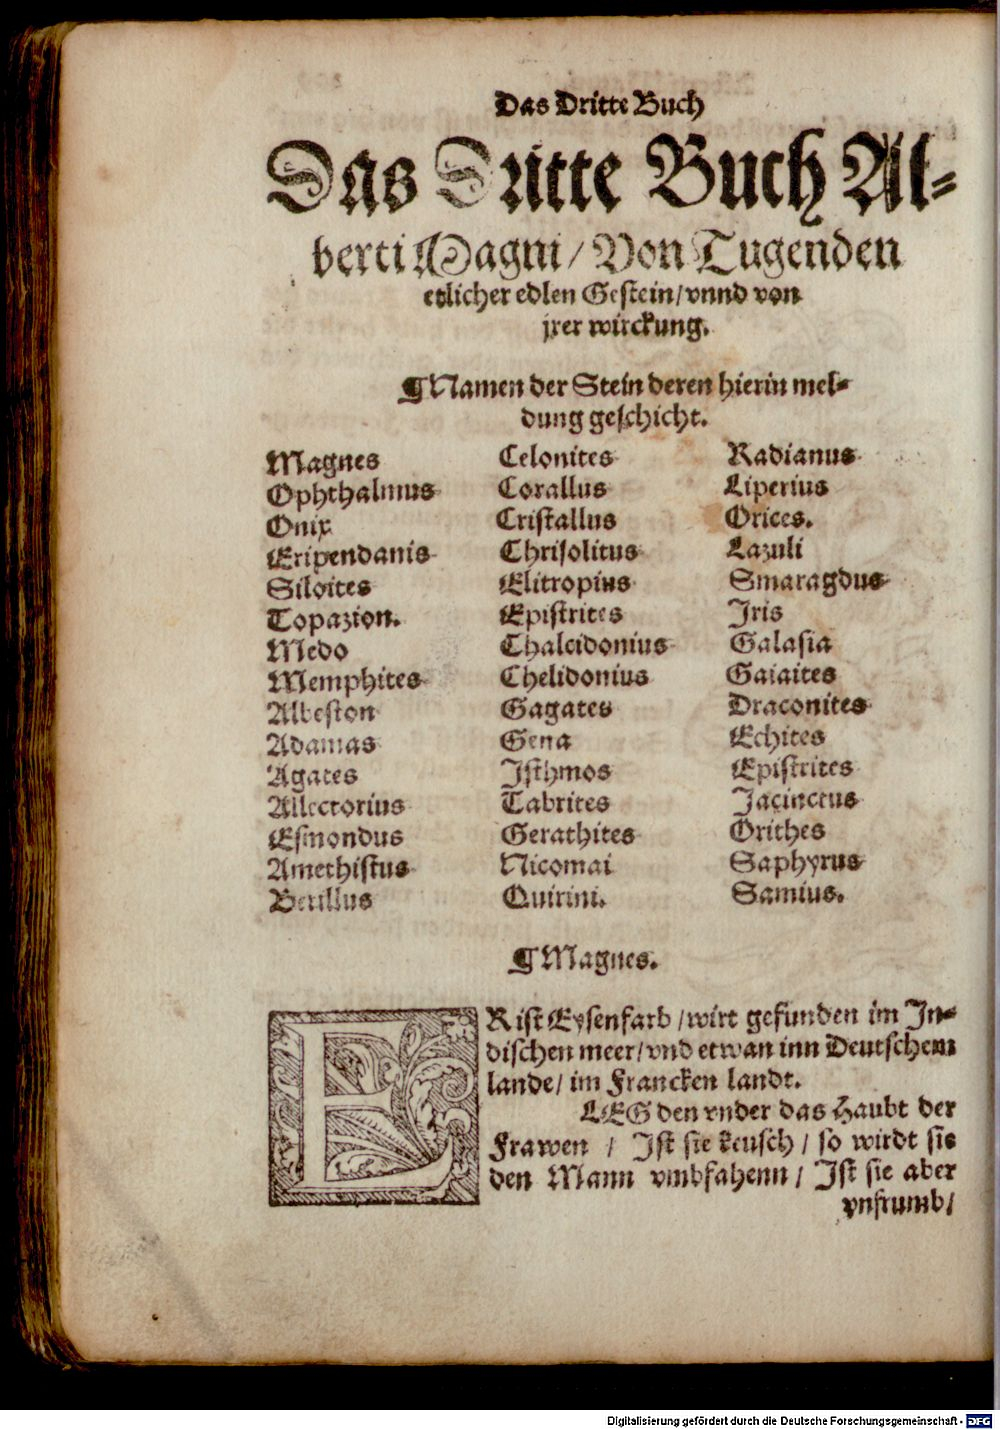 Das Dritte Buch
Das Dritte Buch Al-
berti Magni / Von Tugenden
etlicher edlen Gestein / vnnd von
jrer wirckung.
¶ Namen der Stein deren hierin mel-
dung geschicht.
Magnes
Ophthalmus
Onix
Eripendanis
Siloites
Topazion.
Medo
Memphites
Albeston
Adamas
Agates
Allectorius
Esmondus
Amethistus
Berillus
Celonites
Corallus
Cristallus
Chrisolitus
Elitropius
Epistrites
Chalcidonius
Chelidonius
Gagates
Gena
Isthmos
Tabrites
Gerathites
Nicomai
Quirini.
Radianus
Liperius
Orices.
Lazuli
Smaragdus
Iris
Galasia
Gaiaites
Draconites
Echites
Epistrites
Jacinctus
Orithes
Saphyrus
Samius.
¶ Magnes.
ER ist Eysenfarb / wirt gefunden im In-
dischen meer / vnd etwan inn Deutschem
lande / im Francken landt.
LEG den vnder das Haubt der
Frawen / Ist sie keusch / so wirdt sie
den Mann vmbfahenn / Ist sie aber
vnfrumb /
Digitalisierung gefördert durch die Deutsche Forschungsgemeinschaft - DFG